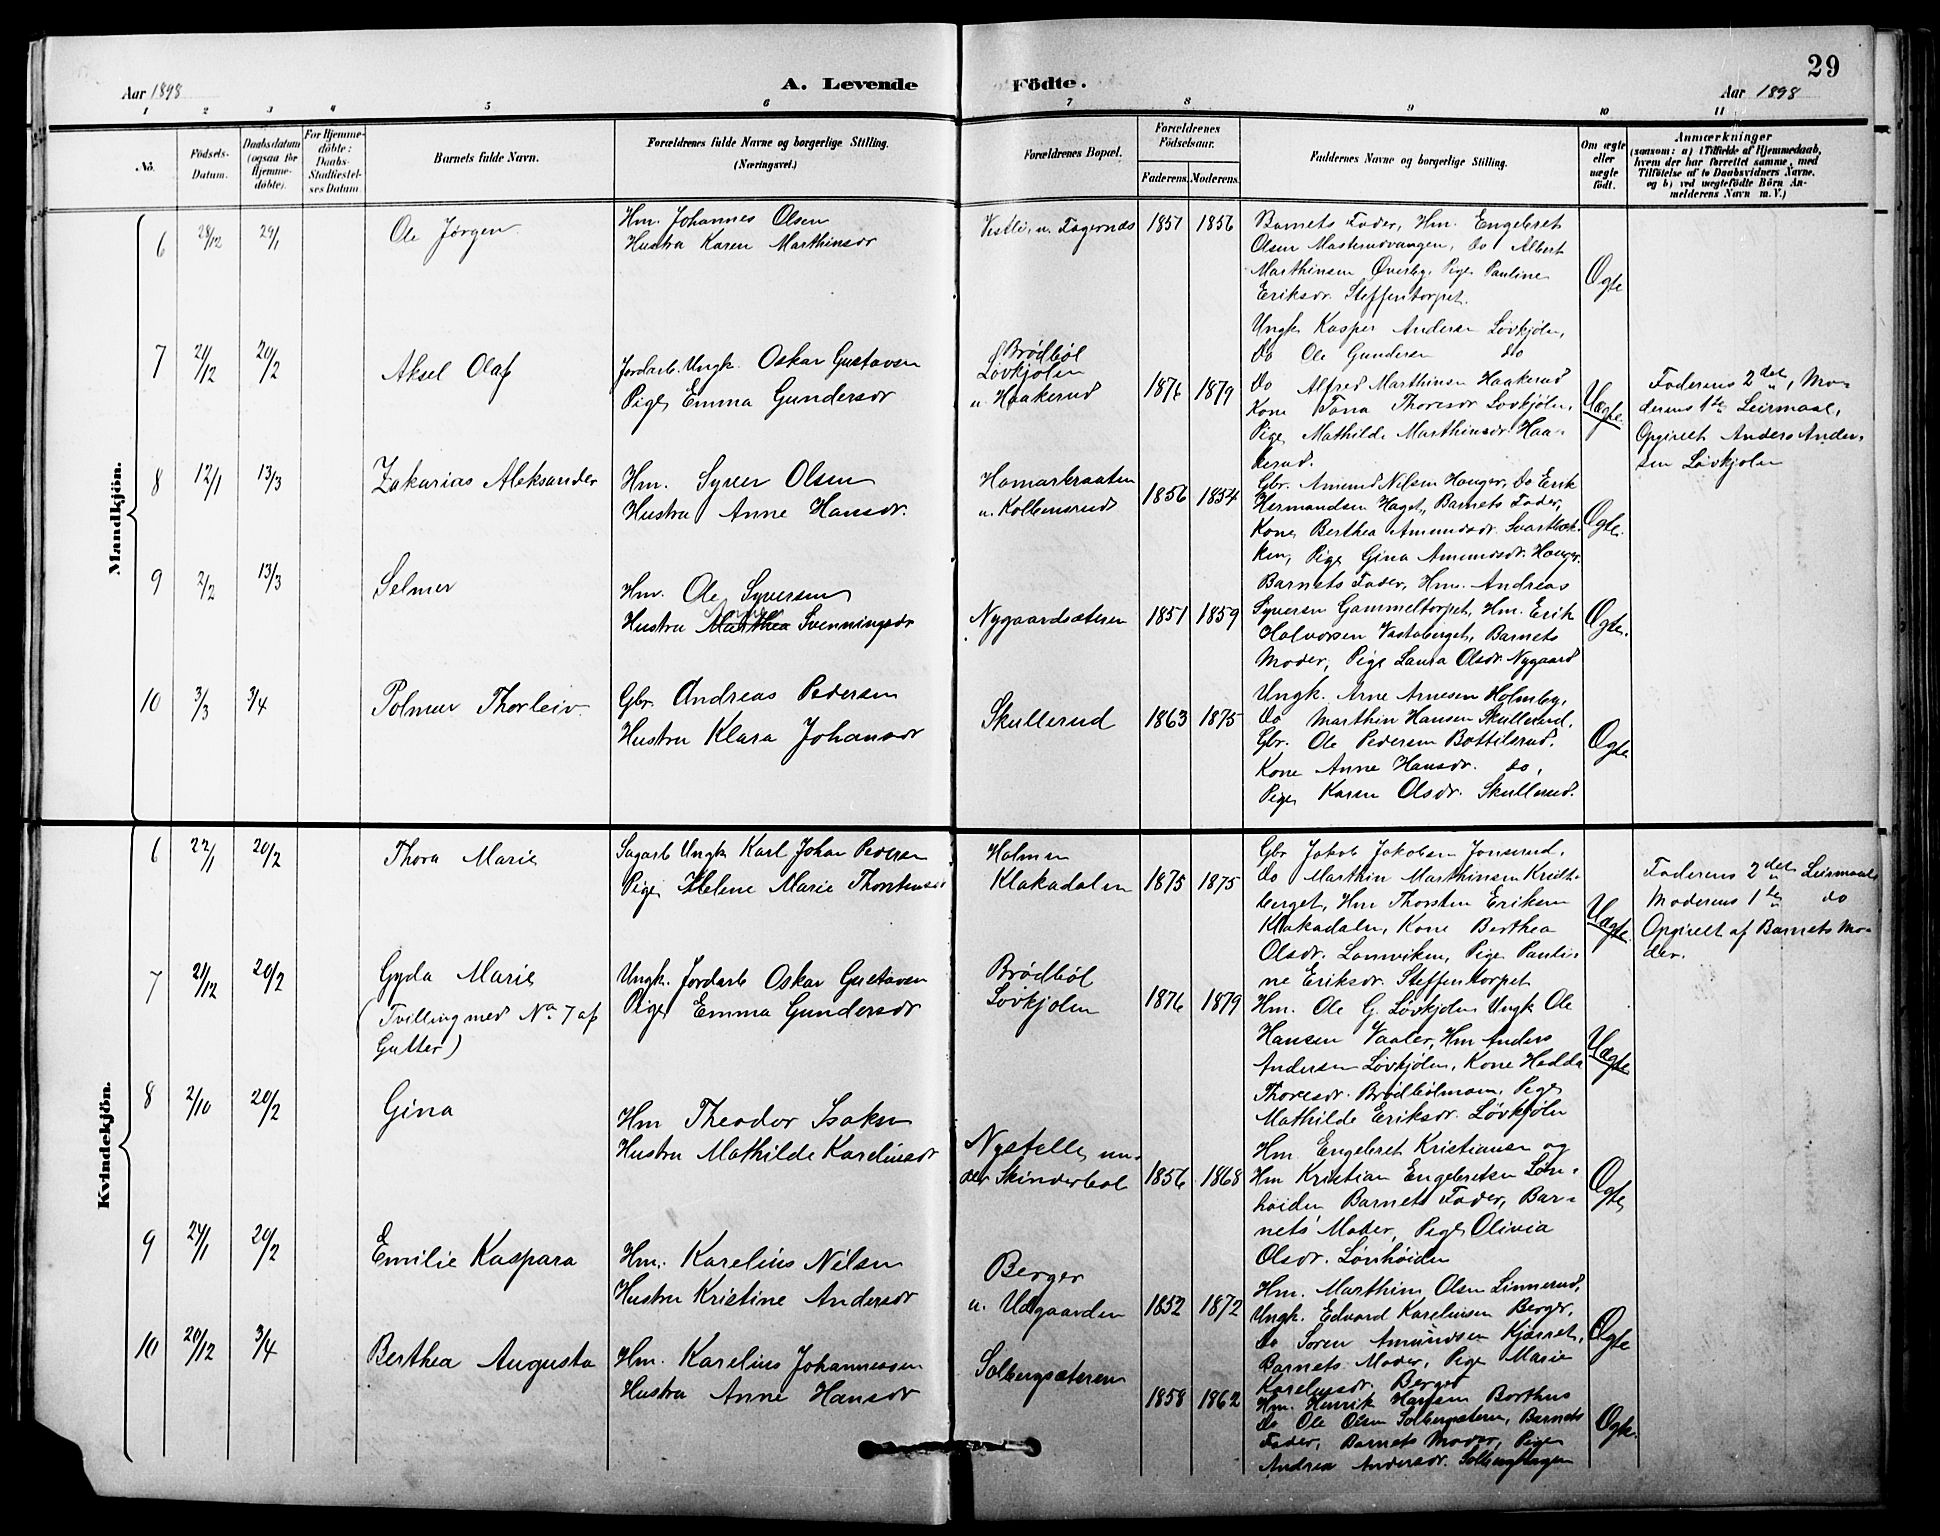 29
Aar 1898
A. Levende
Födte.
Aar 1898
1 2 3 4 5 6 7 8 9 10 11
No.
Födsels-
Datum.
Daabsdatum
(ogsaa for
Hjemme-
døbte).
For Hjemme-
døbte:
Daabs-
Stadfæstel-
ses Datum
Barnets fulde Navn.
Forældrenes fulde Navne og borgerlige Stilling.
(Næringsvei.)
Forældrenes Bopæl.
Forældrenes
Födselsaar.
Faderens. Moderens.
Faddernes Navne og borgerlige Stilling.
Om ægte
eller
uægte
født.
Anmærkninger
(saasom: a) i Tilfælde af Hjemmedaab,
hvem der har forrettet samme, med
Tilföielse af to Daabsvidners Navne,
og b) ved uægtefödte Börn An-
melderens Navn m. V.)
Mandkjön.
6 28/12 29/1
Ole Jørgen
Hm. Johannes Olsen
Hustru Karen Marthinsdr
Vestli u. Fagernæs
1851 1856
Barnets Fader, Hm. Engebret
Olsen Masterudvangen, do Albert
Marthinsen Øverby, Pige Pauline
Eriksdr. Steffentorpet.
Ægte
7 21/12 20/2
Aksel Olaf
Jordarb. Ungk. Oskar Gustavsen
Pige Emma Gundersdr
Brødbøl
Løvkjolen
u. Haakerud
1876 1879
Ungk. Kasper Andersen Løvkjølen,
do Ole Gundersen do
do Alfred Marthinsen Haakerud
Kone Tona Thoresdr Løvkjølen,
Pige Mathilde Marthinsdr. Haa-
kerud.
Uægte
Faderens 2det, Mo-
derens 1ste Leirmaal,
Opgivelt Anders Ander-
sen Løvkjolen
8 12/1 13/3
Zakarias Aleksander
Hm. Syver Olsen
Hustru Anne Hansdr.
Homarkraaten
u. Kolbensrud
1856 1854
Gbr. Amund Nelsen Hauger, do Erik
Hermandsen Haget, Barnets Fader,
Kone Berthea Amundsdr. Svartbæk-
ken, Pige Gina Amundsdr. Hauger.
Ægte.
9 2/2 13/3
Selmer
Hm. Ole Syversen
Hustru Marthea Svenningsdr
Nygaardsæteren
1851 1859
Barnets Fader, Hm. Andreas
Syversen Gammeltorpet, Hm. Erik
Halvorsen Vastaberget, Barnets
Moder, Pige Laura Olsdr. Nygaard
Ægte.
10 3/3 3/4
Polmer Thorleiv
Gbr. Andreas Pedersen
Hustru Klara Johansdr
Skullerud
1863 1875
Ungk. Arne Arnesen Holmsby,
do Marthin Hansen Skullerud,
Gbr. Ole Pedersen Bottilsrud,
Kone Anne Hansdr. do,
Pige Karen Olsdr. Skullerud.
Ægte
Kvindekjön.
6 22/1 20/2
Thora Marie
Sagarb Ungk Karl Johan Pedersen
Pige Helene Marie Thorstensdr
Holmen
Klakadalen
1875 1875
Gbr Jakob Jakobsen Jonsrud,
do Marthin Marthinsen Kridt-
berget, Hm Thorsten Eriksen
Klakadalen, Kone Berthea
Olsdr. Lomviken, Pige Pauli-
ne Eriksdr. Steffentorpet
Uægte.
Faderens 2det Leirmaal
Moderens 1ste do
Opgivelt af Barnets Mo-
der.
7 21/12 20/2
Gyda Marie
(Tvilling med No 7 af
Gutter)
Ungk. Jordarb Oskar Gustavsen
Pige Emma Gundersdr
Brødbøl
Løvkjolen
1876 1879
Hm. Ole G. Løvkjolen Ungk Ole
Hansen Vaaler, Hm Anders
Andersen Løvkjølen, Kone Hedda
Thoresdr. Brødbølmoen, Pige
Mathilde Eriksdr. Løvkjøln
Uægte
8 2/10 20/2
Gina
Hm Theodor Isaksen
Hustru Mathilde Kareliusdr
Nystelle un-
der Skinderbøl
1856 1868
Hm. Engebret Kristiansen og
Hm Kristian Engebretsen Løn-
høiden Barnets Fader, Bar-
nets Moder, Pige Olivia
Olsdr. Lønhøiden
Ægte
9 24/1 20/2
Emilie Kaspara
Hm. Karelius Nilsen
Hustru Kristine Andersdr
Berger
u. Udgaarden
1852 1872
Hm. Marthin Olsen Linnerud,
Ungk. Edvard Kareliusen Berger,
do Søren Amundsen Kjærret,
Barnets Moder, Pige Marie
Kareliusdr. Berger
Ægte
10 20/12 3/4
Berthea Augusta
Hm. Karelius Johannessen
Hustru Anne Hansdr
Solbergsæteren
1858 1862
Hm. Henrik Hansen Borthus
do Ole Olsen Solbergsæteren, Barnets
Fader, Barnets Moder, Pige
Andrea Andersdr. Solberghagen
Ægte.